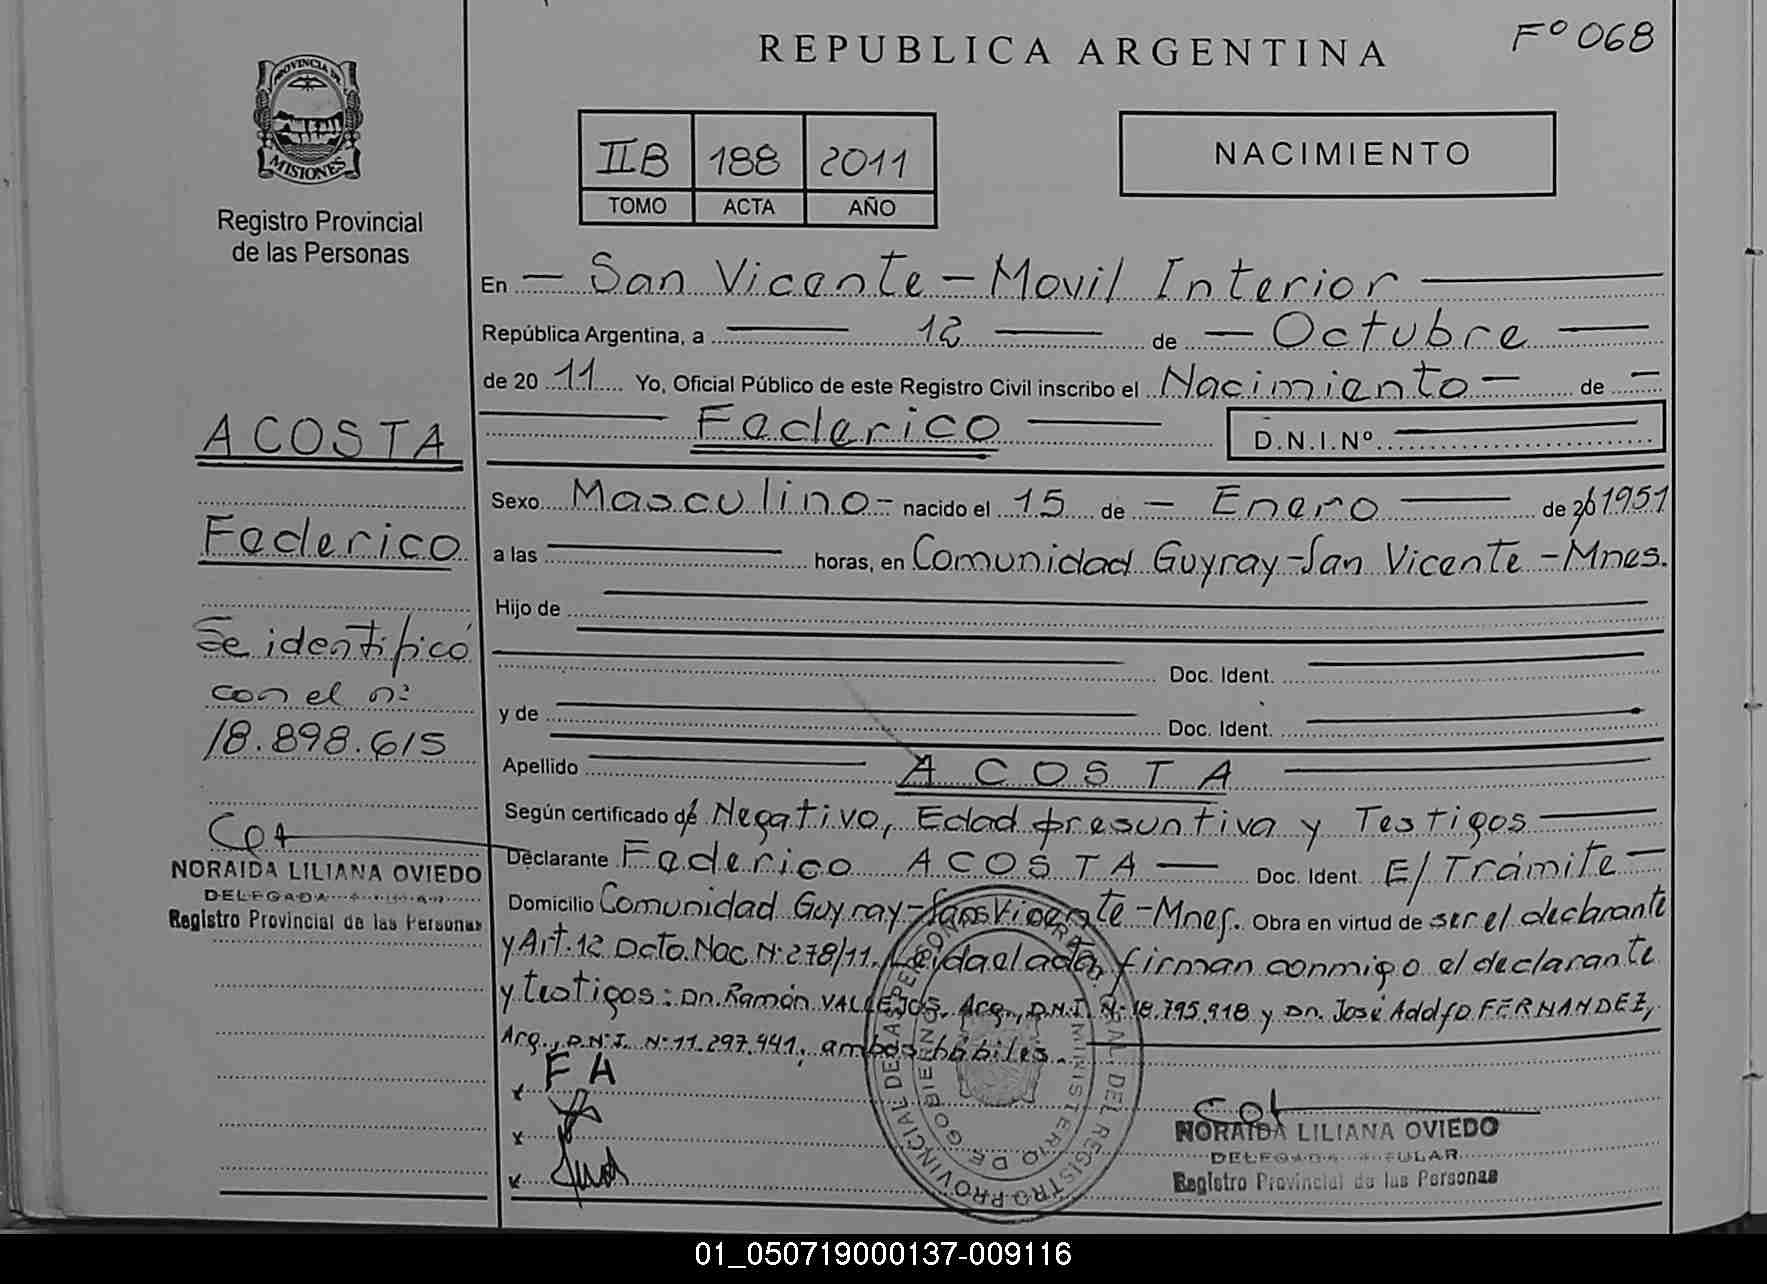 Fº 068
REPUBLICA ARGENTINA
PROVINCIA DE
MISIONES
Registro Provincial
de las Personas
IIB 188 2011
TOMO ACTA AÑO
NACIMIENTO
En — San Vicente - Movil Interior
República Argentina, a 12 de - Octubre
de 20 11 Yo, Oficial Público de este Registro Civil inscribo el Nacimiento - de -
Federico D.N.I.Nº
Sexo Masculino - nacido el 15 de - Enero de 20 1951
a las horas, en Comunidad Guyray - San Vicente - Mnes.
Hijo de
Doc. Ident.
y de Doc. Ident.
Apellido ACOSTA
Según certificado de Negativo, Edad presuntiva y Testigos
Declarante Federico ACOSTA Doc. Ident. E/Trámite -
Domicilio Comunidad Guyray - San Vicente - Mnes. Obra en virtud de ser el declarante
y Art. 12 Dcto. Nac. Nº 278/11. Leida el acta, firman conmigo el declarante
y testigos: Dn. Ramón VALLEJOS, Arg., D.N.I. Nº 18.795.918 y Dn. José Adolfo FERNANDEZ,
Arg., D.N.I. Nº 11.297.441, ambos hábiles.
x FA
x
x
NORAIDA LILIANA OVIEDO
DELEGADA TITULAR
Registro Provincial de las Personas
REGISTRO PROVINCIAL DE LAS PERSONAS
MINISTERIO DE GOBIERNO
ACOSTA
Federico
Se identificó
con el nº
18.898.615
NORAIDA LILIANA OVIEDO
DELEGADA
Registro Provincial de las Personas
01_050719000137-009116